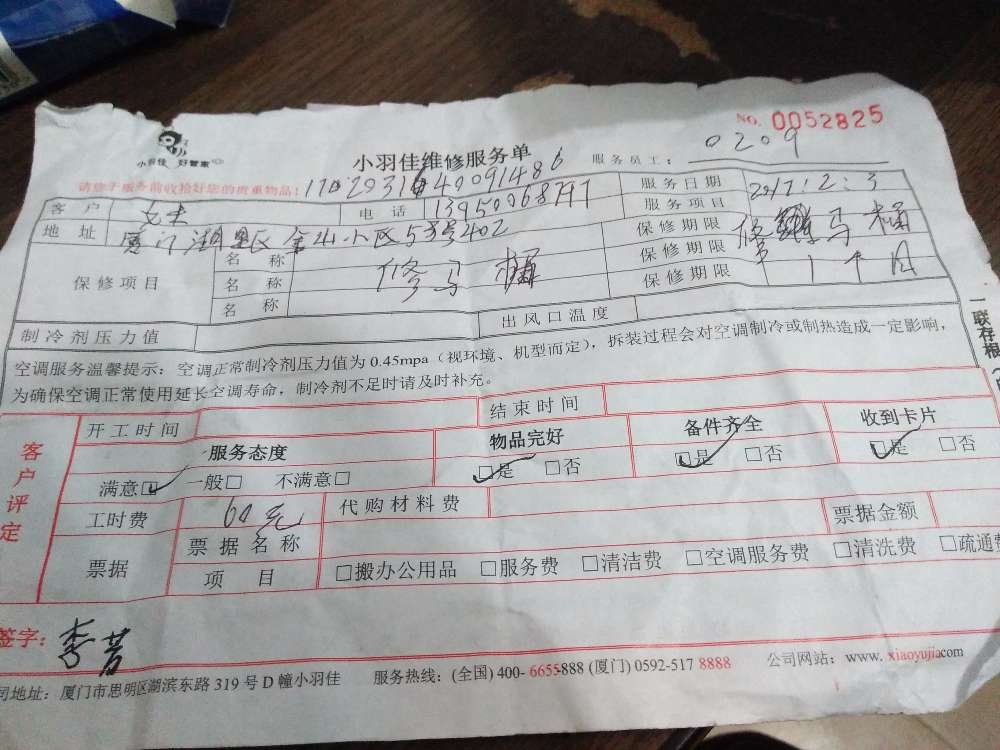 小羽佳 好管家
NO. 0052825
小羽佳维修服务单
服务员工: 0209
请您于服务前收拾好您的贵重物品:
客户 电话 13950068797 服务日期 2017:2:3
地址 厦门湖里区金山小区53号402 服务项目 修马桶
保修项目 名称 修马桶 保修期限 1个月
名称 保修期限
名称 保修期限
制冷剂压力值 出风口温度
空调服务温馨提示: 空调正常制冷剂压力值为 0.45mpa (视环境、机型而定), 拆装过程会对空调制冷或制热造成一定影响,
为确保空调正常使用延长空调寿命, 制冷剂不足时请及时补充。
一联存根
客户评定
开工时间 结束时间
服务态度 物品完好 备件齐全 收到卡片
满意☑ 一般□ 不满意□ ☑是 □否 ☑是 □否 ☑是 □否
工时费 60元 代购材料费 票据金额
票据 票据名称
项目 □搬办公用品 □服务费 □清洁费 □空调服务费 □清洗费 □疏通费
签字: 李
司地址: 厦门市思明区湖滨东路 319 号 D 幢小羽佳 服务热线: (全国) 400- 6655-888 (厦门) 0592-517 8888 公司网站: www. xiaoyujia.com